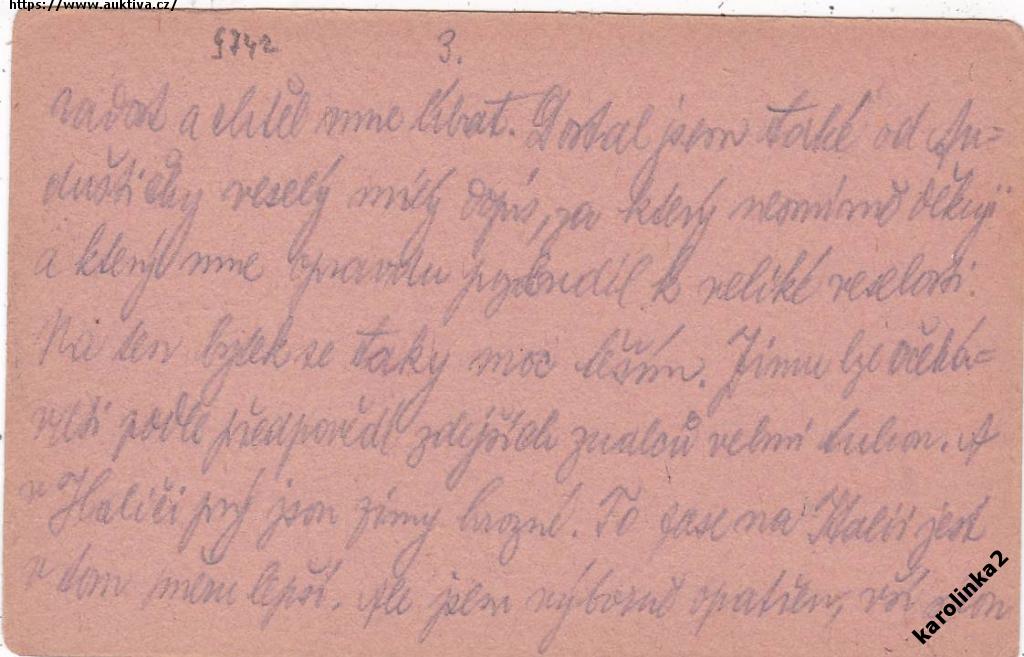 https://www.auktiva.cz/
9742 3.
radost a chtěl mne líbat. Dostal jsem také od An=
dušticky veselý milý dopis, za který nesmírně děkuji
a který mne opravdu pobudil k veliké veselosti.
Na ten bytek se taky moc těším. Zimu lze očeká=
vati podle předpovědí zdejších znalců velmi tuhou. A
v Haliči prý jsou zimy hrozné. To zase na Haliči jest
v tom měru lepší. Ale jsem výborně opatřen, vší
karolinka2